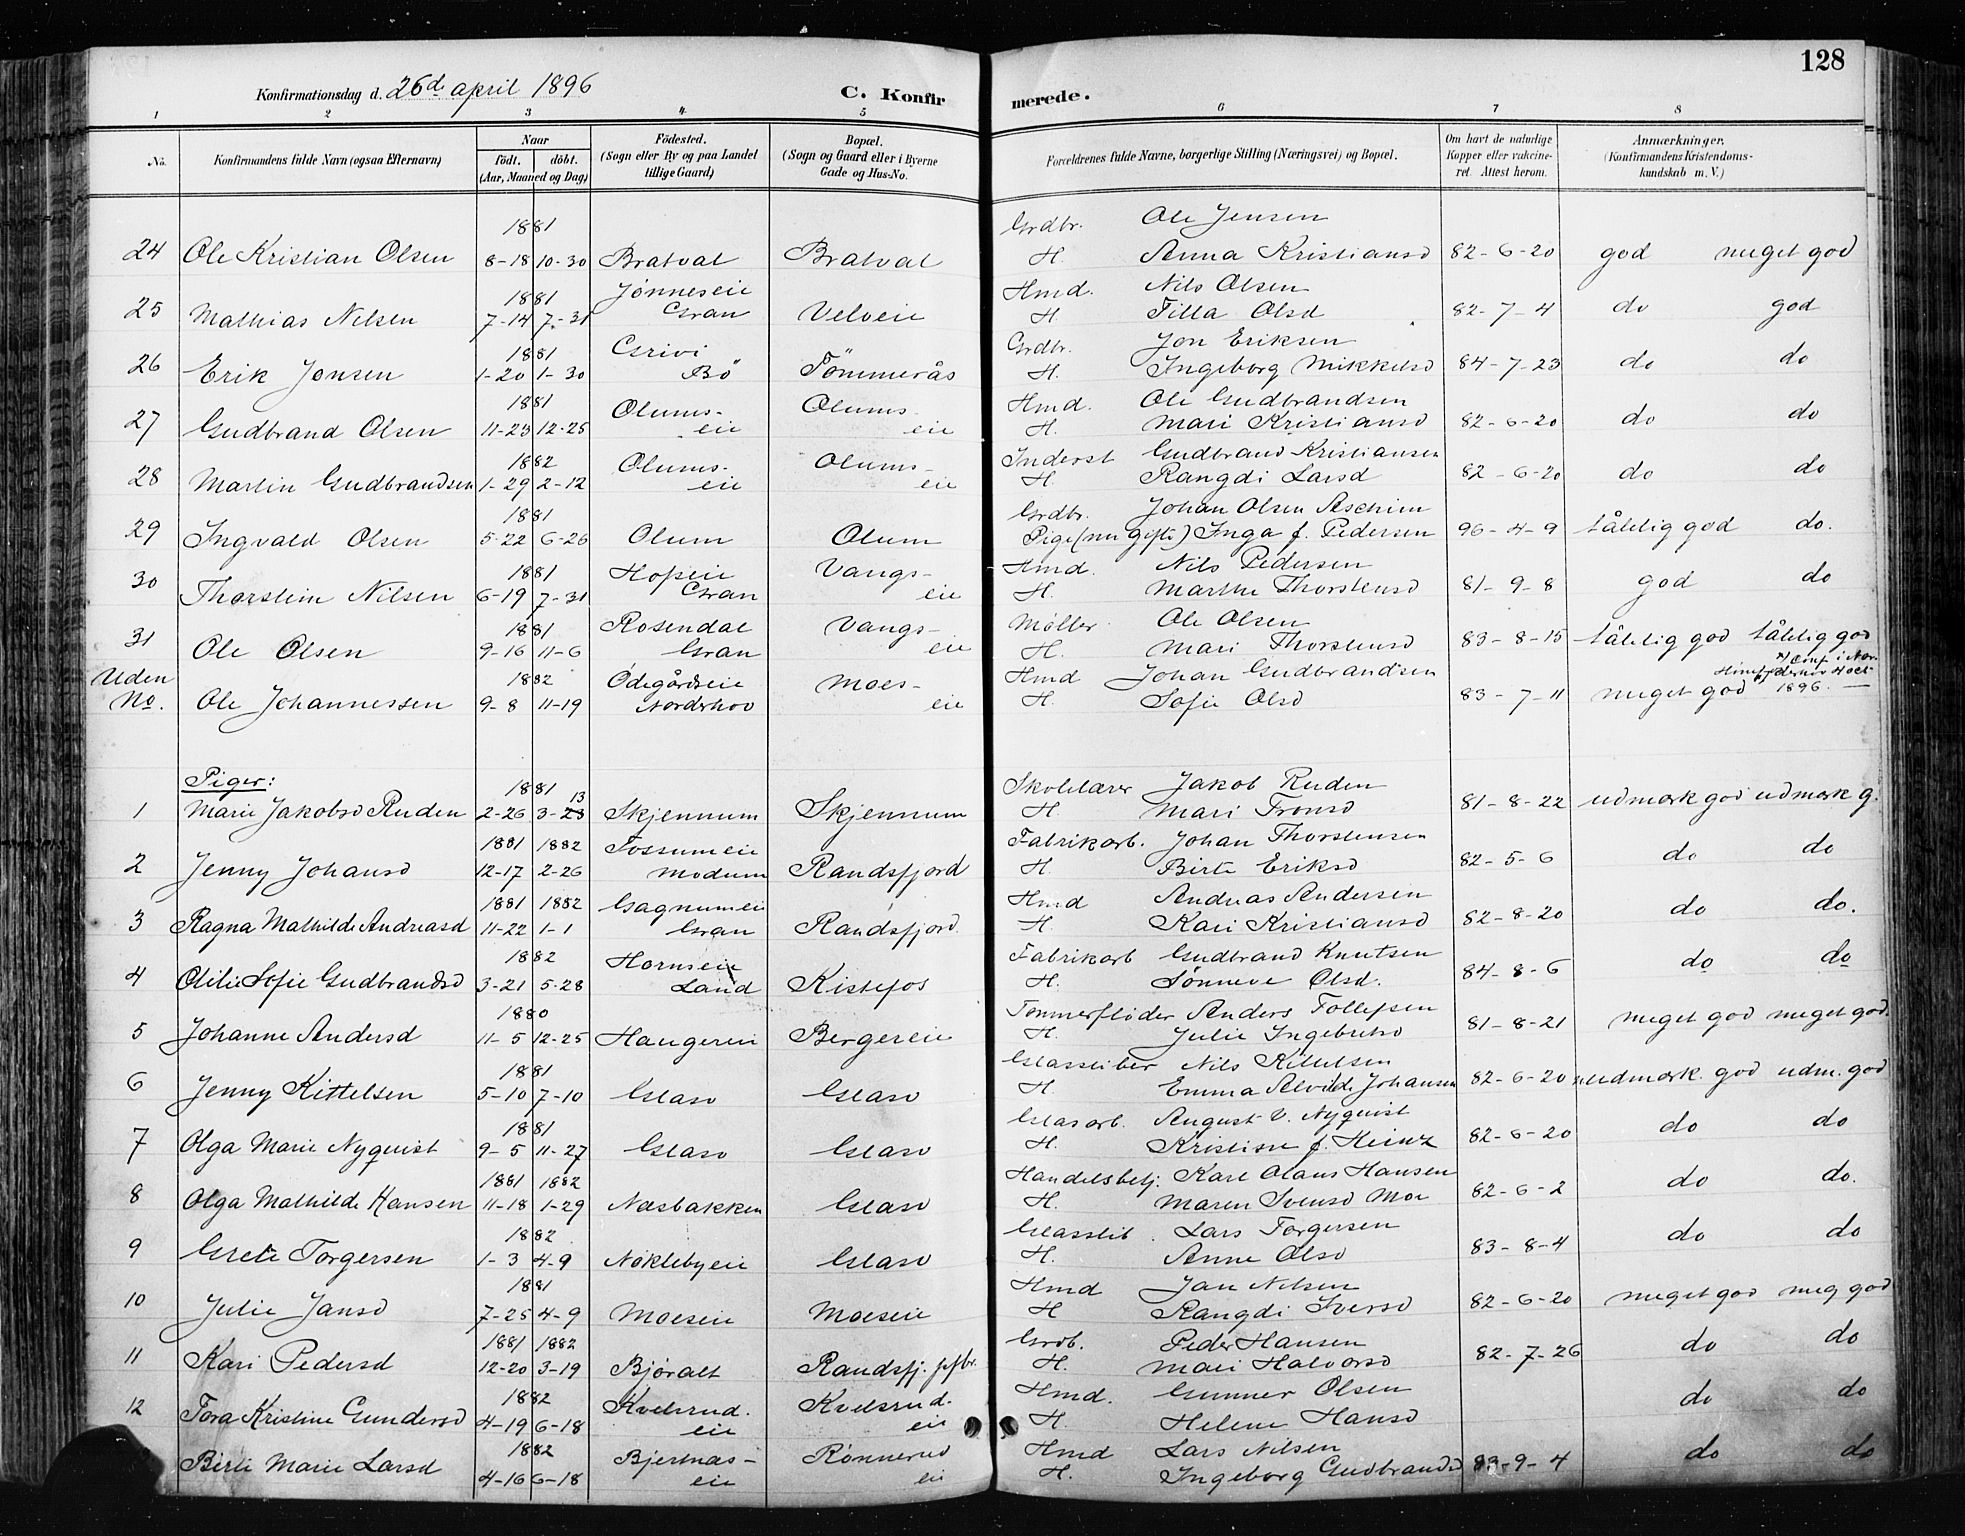 128
Konfirmationsdag d. 26de april 1896 C. Konfirmerede.
1 2 3 4 5 6 7 8
No. Konfirmandens fulde Navn (ogsaa Efternavn) Naar født. døbt. (Aar, Maaned og Dag) Fødested. (Sogn eller By og paa Landet tillige Gaard) Bopæl. (Sogn og Gaard eller i Byerne Gade og Hus-No. Forældrenes fulde Navne, borgerlige Stilling (Næringsvei) og Bopæl. Om havt de naturlige Kopper eller vakcineret. Attest herom. Anmærkninger. (Konfirmandens Kristendomskundskab m. V.)
1881 Grdbr. Ole Jensen
24 Ole Kristian Olsen 8-18 10-30 Bratval Bratval H. Anna Kristiansd 82-6-20 god meget god
1881 Jønneseie Hmd. Nils Olsen
25 Mathias Nilsen 7-14 7-31 Gran Velveie H. Tilla Olsd 82-7-4 do god
1881 Grivi Grdbr. Jon Eriksen
26 Erik Jonsen 1-20 1-30 Bö Tömmerås H. Ingeborg Mikkelsd 84-7-23 do do
1881 Olums- Olums- Hmd. Ole Gudbrandsen
27 Gudbrand Olsen 11-23 12-25 eie eie H. Mari Kristiansd 82-6-20 do do
1882 Olums- Olums- Inderst Gudbrand Kristiansen
28 Martin Gudbrandsen 1-29 2-12 eie eie H. Rangdi Larsd 82-6-20 do do
1881 Grdbr. Johan Olsen Aschim
29 Ingvald Olsen 5-22 6-26 Olum Olum Pige (nu gift) Inga f. Pedersen 96-4-9 tålelig god do.
1881 Hopeie Vangs- Hmd. Nils Pedersen
30 Thorstein Nilsen 6-19 7-31 Gran eie H. Marthe Thorstensd 81-9-8 god do
1881 Rosendal Vangs- Møller Ole Olsen
31 Ole Olsen 9-16 11-6 Gran eie H. Mari Thorstensd 83-8-15 tålelig god tålelig god
Uden 1882 Ödegårdseie Moes- Hmd Johan Gudbrandsen
No. Ole Johannessen 9-8 11-19 Norderhov eie H. Sofie Olsd 83-7-11 meget god 1896.
Piger:
1881 Skolelærer Jakob Ruden
1 Marie Jakobsd Ruden 2-26 3-23 13 Skjennum Skjennum H. Mari Tronsd 81-8-22 udmærk god udmærk g.
1881 1882 Fossumeie Fabrikarb. Johan Thorstensen
2 Jenny Johansd 12-17 2-26 Modum Randsfjord H. Birte Eriksd 82-5-6 do do
1881 1882 Gagnumeie Hmd Andreas Andersen
3 Ragna Mathilde Andreasd 11-22 1-1 Gran Randsfjord. H. Kari Kristiansd 82-8-20 do do.
1882 Hornseie Fabrikarb Gudbrand Knutsen
4 Otilie Sofie Gudbrandsd 3-21 5-28 Land Kistefos H. Sønneve Olsd. 84-8-6 do do
1880 Tømmerfløder Anders Tollefsen
5 Johanne Andersd 11-5 12-25 Haugereie Bergereie H. Julie Ingebretsd 81-8-21 meget god meget god.
1881 Glassliber Nils Kittelsen
6 Jenny Kittelsen 5-10 7-10 Glasv Glasv H. Emma Alvilde Johansen 82-6-20 udmærk. god udm. god
1881 Glasarb. August V. Nyquist
7 Olga Marie Nyquist 9-5 11-27 Glasv Glasv H. Kristine f. Heinz 82-6-20 do do
1881 1882 Handelsbetj. Karl Olaus Hansen
8 Olga Mathilde Hansen 11-18 1-29 Næsbakken Glasv H. Maren Svensd Moe 82-6-2 do do.
1882 Glasslib. Lars Torgersen
9 Grete Torgersen 1-3 4-9 Nøklebyeie Glasv H. Anne Olsd 83-8-4 do do
1881 Hmd Jan Nilsen
10 Julie Jansd 7-25 4-9 Moeseie Moeseie H Rangdi Iversd 82-6-20 meget god meg god
1881 1882 Grdb. Peder Hansen
11 Kari Pedersd 12-20 3-19 Bjøralt Randsfj. H. Mari Halvorsd 82-7-26 do do
1882 Kvelsrud- Kvelsrud- Hmd. Gunner Olsen
12 Tora Kristine Gundersd 4-19 6-18 eie eie H. Helene Hansd do do
1882 Bjertnæs- Rønnerud Hmd Lars Nilsen
Birte Marie Larsd 4-16 6-18 eie ei H. Ingeborg Gudbrandsd 83-9-4 do do